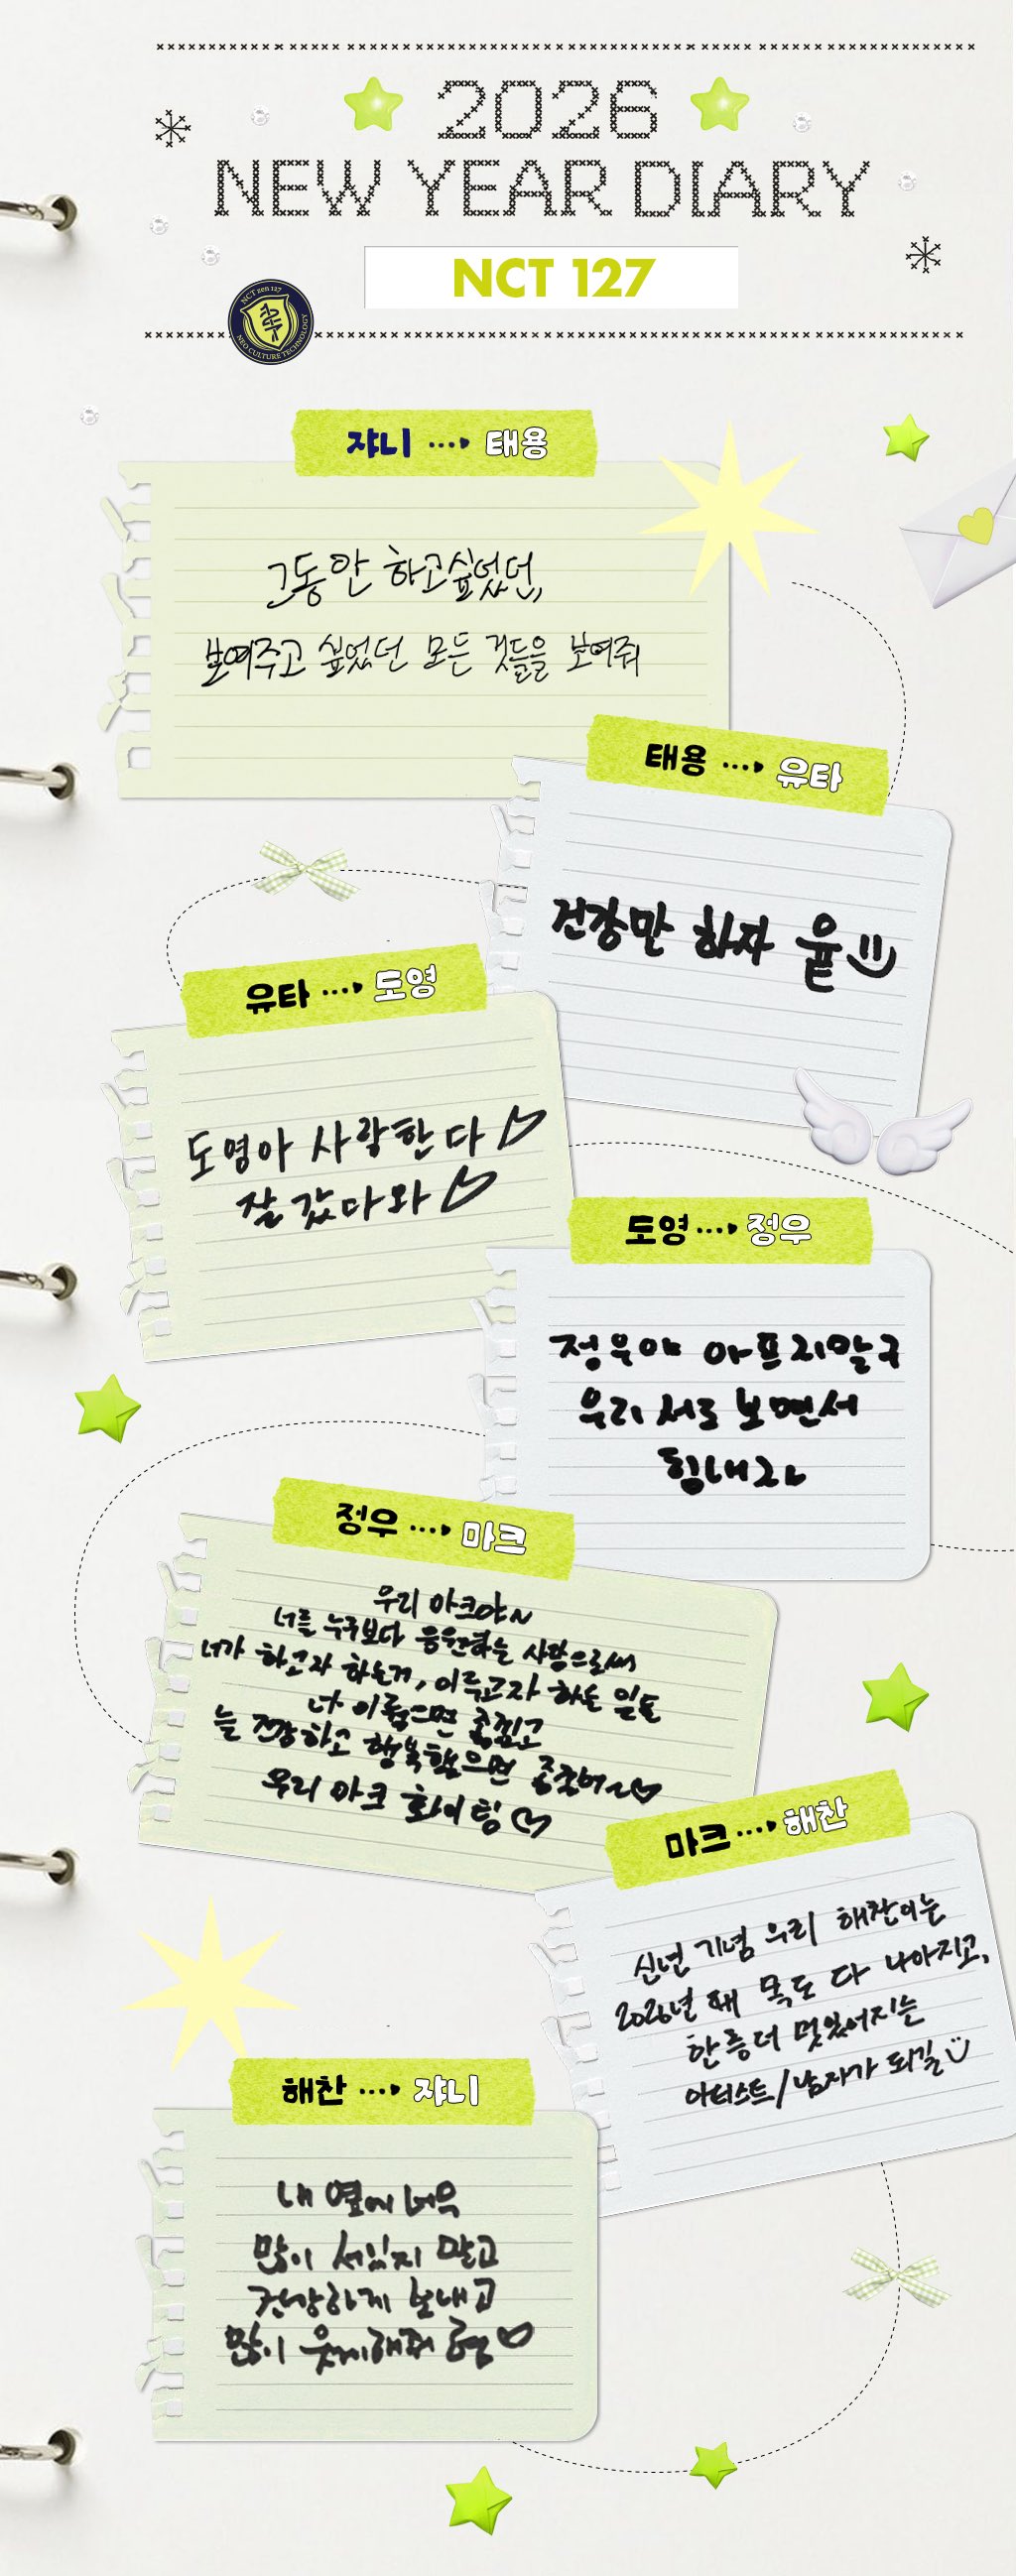 2026
NEW YEAR DIARY
NCT 127
NCT zen 127
NEO CULTURE TECHNOLOGY
쟈니 ····▸ 태용
그동안 하고싶었던,
보여주고 싶었던 모든 것들을 보여줘
태용 ····▸ 유타
건강만 하자 윹
유타 ····▸ 도영
도영아 사랑한다♡
잘 갔다와♡
도영 ····▸ 정우
정우야 아프지말구
우리 서로 보면서
힘내자
정우 ····▸ 마크
우리 마크야~
너를 누구보다 응원하는 사람으로써
너가 하고자 하는거, 이루고자 하는 일들
다 이뤘으면 좋겠고
늘 건강하고 행복했으면 좋겠어~♡
우리 마크 화이팅♡
마크 ····▸ 해찬
신년 기념 우리 해찬이는
2026년 때 목도 다 나아지고,
한층더 멋있어지는
아티스트/남자가 되길
해찬 ····▸ 쟈니
내 옆에 너무
많이 서있지 말고
건강하게 보내고
많이 웃게해줘 형♡